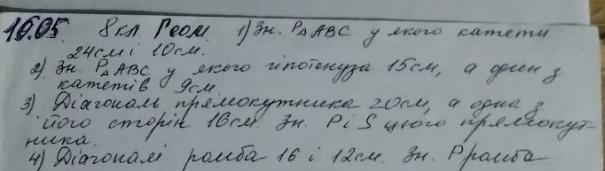 16.05. 8 кл. Геом. 1) Зн. P△ABC у якого катети
24см і 10см.
2) Зн. P△ABC у якого гіпотенуза 15см, а один з
катетів 9см.
3) Діагональ прямокутника 20см, а одна з
його сторін 16см. Зн. P і S цього прямокут-
ника.
4) Діагоналі ромба 16 і 12см. Зн. Pромба